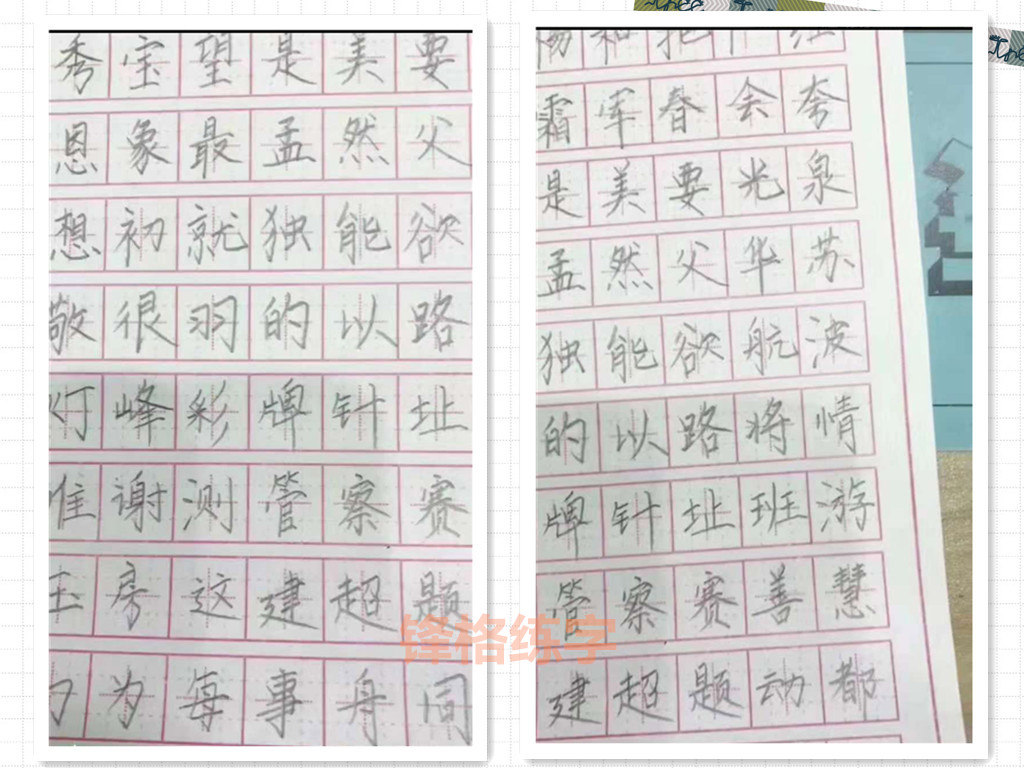 秀宝望是美要
恩象最孟然父
想初就独能欲
敬很羽的以路
灯峰彩牌针址
谁谢测管察赛
压房这建超题
为每事舟同
杨和把红
霜军春会夸
是美要光泉
孟然父华苏
独能欲航波
的以路将情
牌针址班游
管察赛善慧
建超题动都
锋格练字